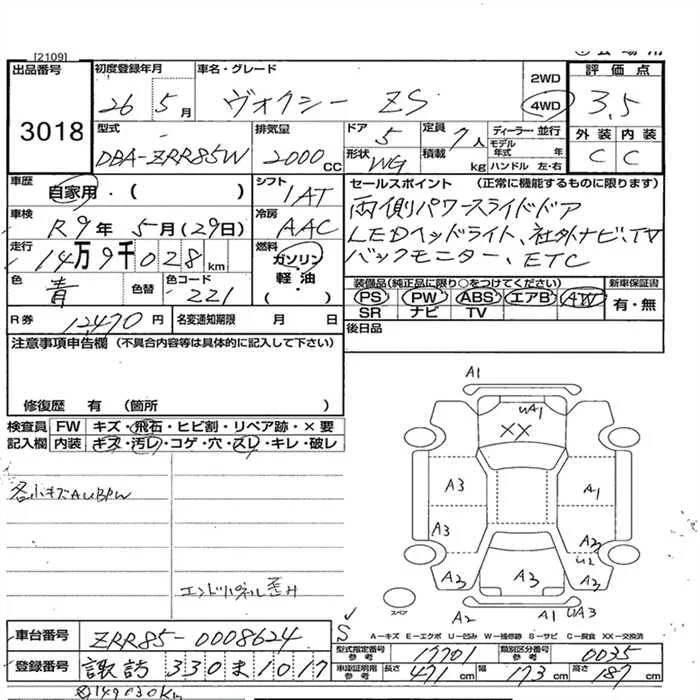 [2109]
出品番号 3018
初度登録年月 26 5月
車名・グレード ヴォクシー ZS
2WD
4WD
評価点 3.5
外装 内装
C C
型式 DBA-ZRR85W
排気量 2000 CC
ドア 5
定員 7人
ディーラー・並行
モデル年式 年
形状 WG
積載 kg
ハンドル 左・右
車歴 自家用・( )
シフト IAT
セールスポイント (正常に機能するものに限ります)
車検 R9年5月(29日)
冷房 AAC
両側パワースライドドア
LEDヘッドライト、社外ナビ、TV
バックモニター、ETC
走行 14万9千028km
燃料 ガソリン
軽・油
・( )
色 青 色替
色コード 221
装備品(純正品に限り○をつけてください)
新車保証書
PS PW ABS エアB AW
有・無
SR ナビ TV
R券 12470円
名変通知期限 月 日
後日品
注意事項申告欄 (不具合内容等は具体的に記入して下さい)
修復歴 有 (箇所 )
検査員 FW キズ・飛石・ヒビ割・リペア跡・×要
記入欄 内装 キズ・汚レ・コゲ・穴・スレ・キレ・破レ
各小キズAUBPW
エンドパネル歪み
A1
UA1
XX
A3
A1
A3
A2
U2
A3
A3
A3
A2
A1
UA3
スペア
S
A−キズ E−エクボ U−凹み W−補修跡 S−サビ C−腐食 XX−交換済
車台番号 ZRR85-0008624
型式指定番号 参考 17701
類別区分番号 参考 0035
登録番号 諏訪 330 ま 1017
車庫証明用 参考 長さ 471cm 幅 173cm 高さ 187cm
149030km